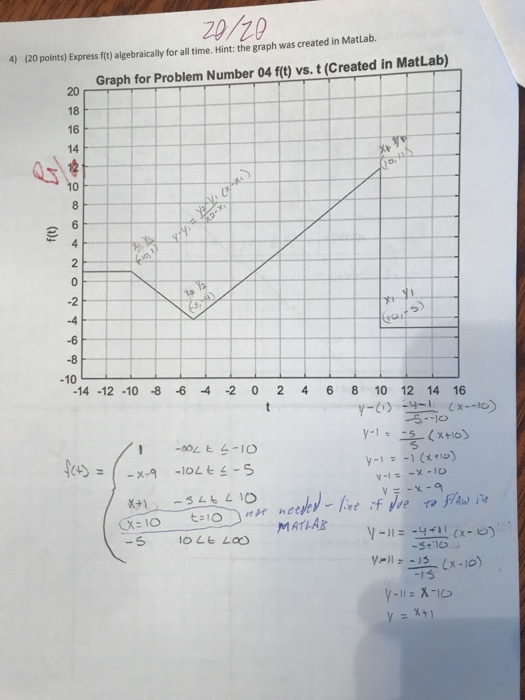 20/20
4) (20 points) Express f(t) algebraically for all time. Hint: the graph was created in MatLab.
Graph for Problem Number 04 f(t) vs. t (Created in MatLab)
20
18
16
14
12
10
8
6
4
2
0
-2
-4
-6
-8
-10
f(t)
x₄ y₄
(10,11)
y-y₁ = y₂-y₁/x₂-x₁ (x-x₁)
(-10,1)
(-5,-4)
x₁ y₁
(10,-5)
-14 -12 -10 -8 -6 -4 -2 0 2 4 6 8 10 12 14 16
t
f(t) =
1 -∞<t≤-10
-x-9 -10<t≤-5
x+1 -5<t<10
x=10 t=10 not needed - line if due to flaw in MATLAB
-5 10<t<∞
y-(1) = -4-1/-5--10 (x--10)
y-1 = -5/5 (x+10)
y-1 = -1(x+10)
y-1 = -x-10
y = -x-9
y-11 = -4-11/-5-10 (x-10)
y-11 = -15/-15 (x-10)
y-11 = x-10
y = x+1